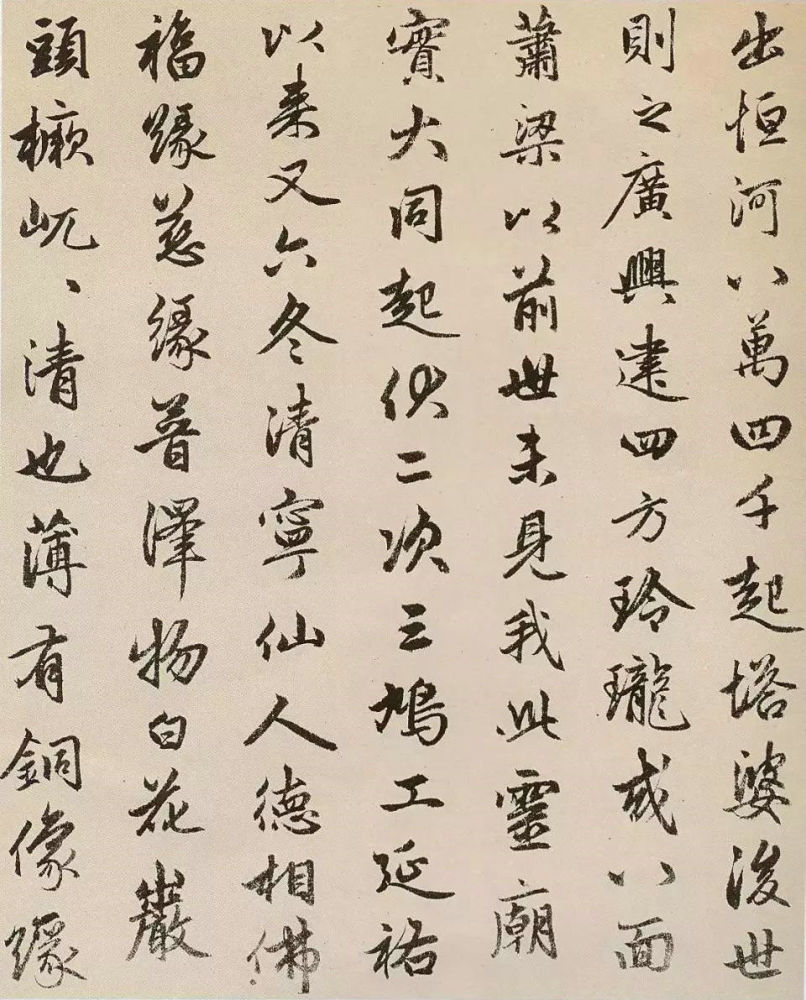 出恒河八萬四千起塔婆後世
則之廣興建四方玲瓏或八面
蕭梁以前世未見我此靈廟
實大同起伏二次三鳩工延祐
以来又六冬清寧仙人德相佛
福緣慈緣普澤物白花巖
頭櫴屼〻清也薄有銅像緣